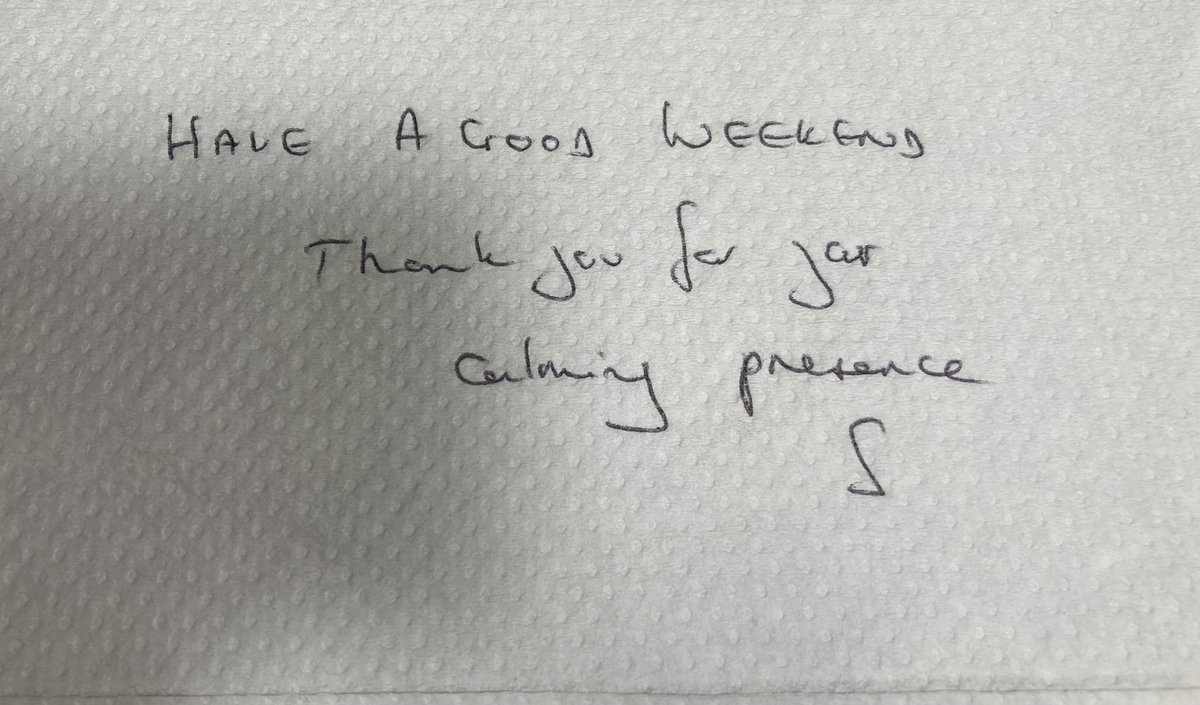 HAVE A GOOD WEEKEND
Thank you for your
Calming presence
S